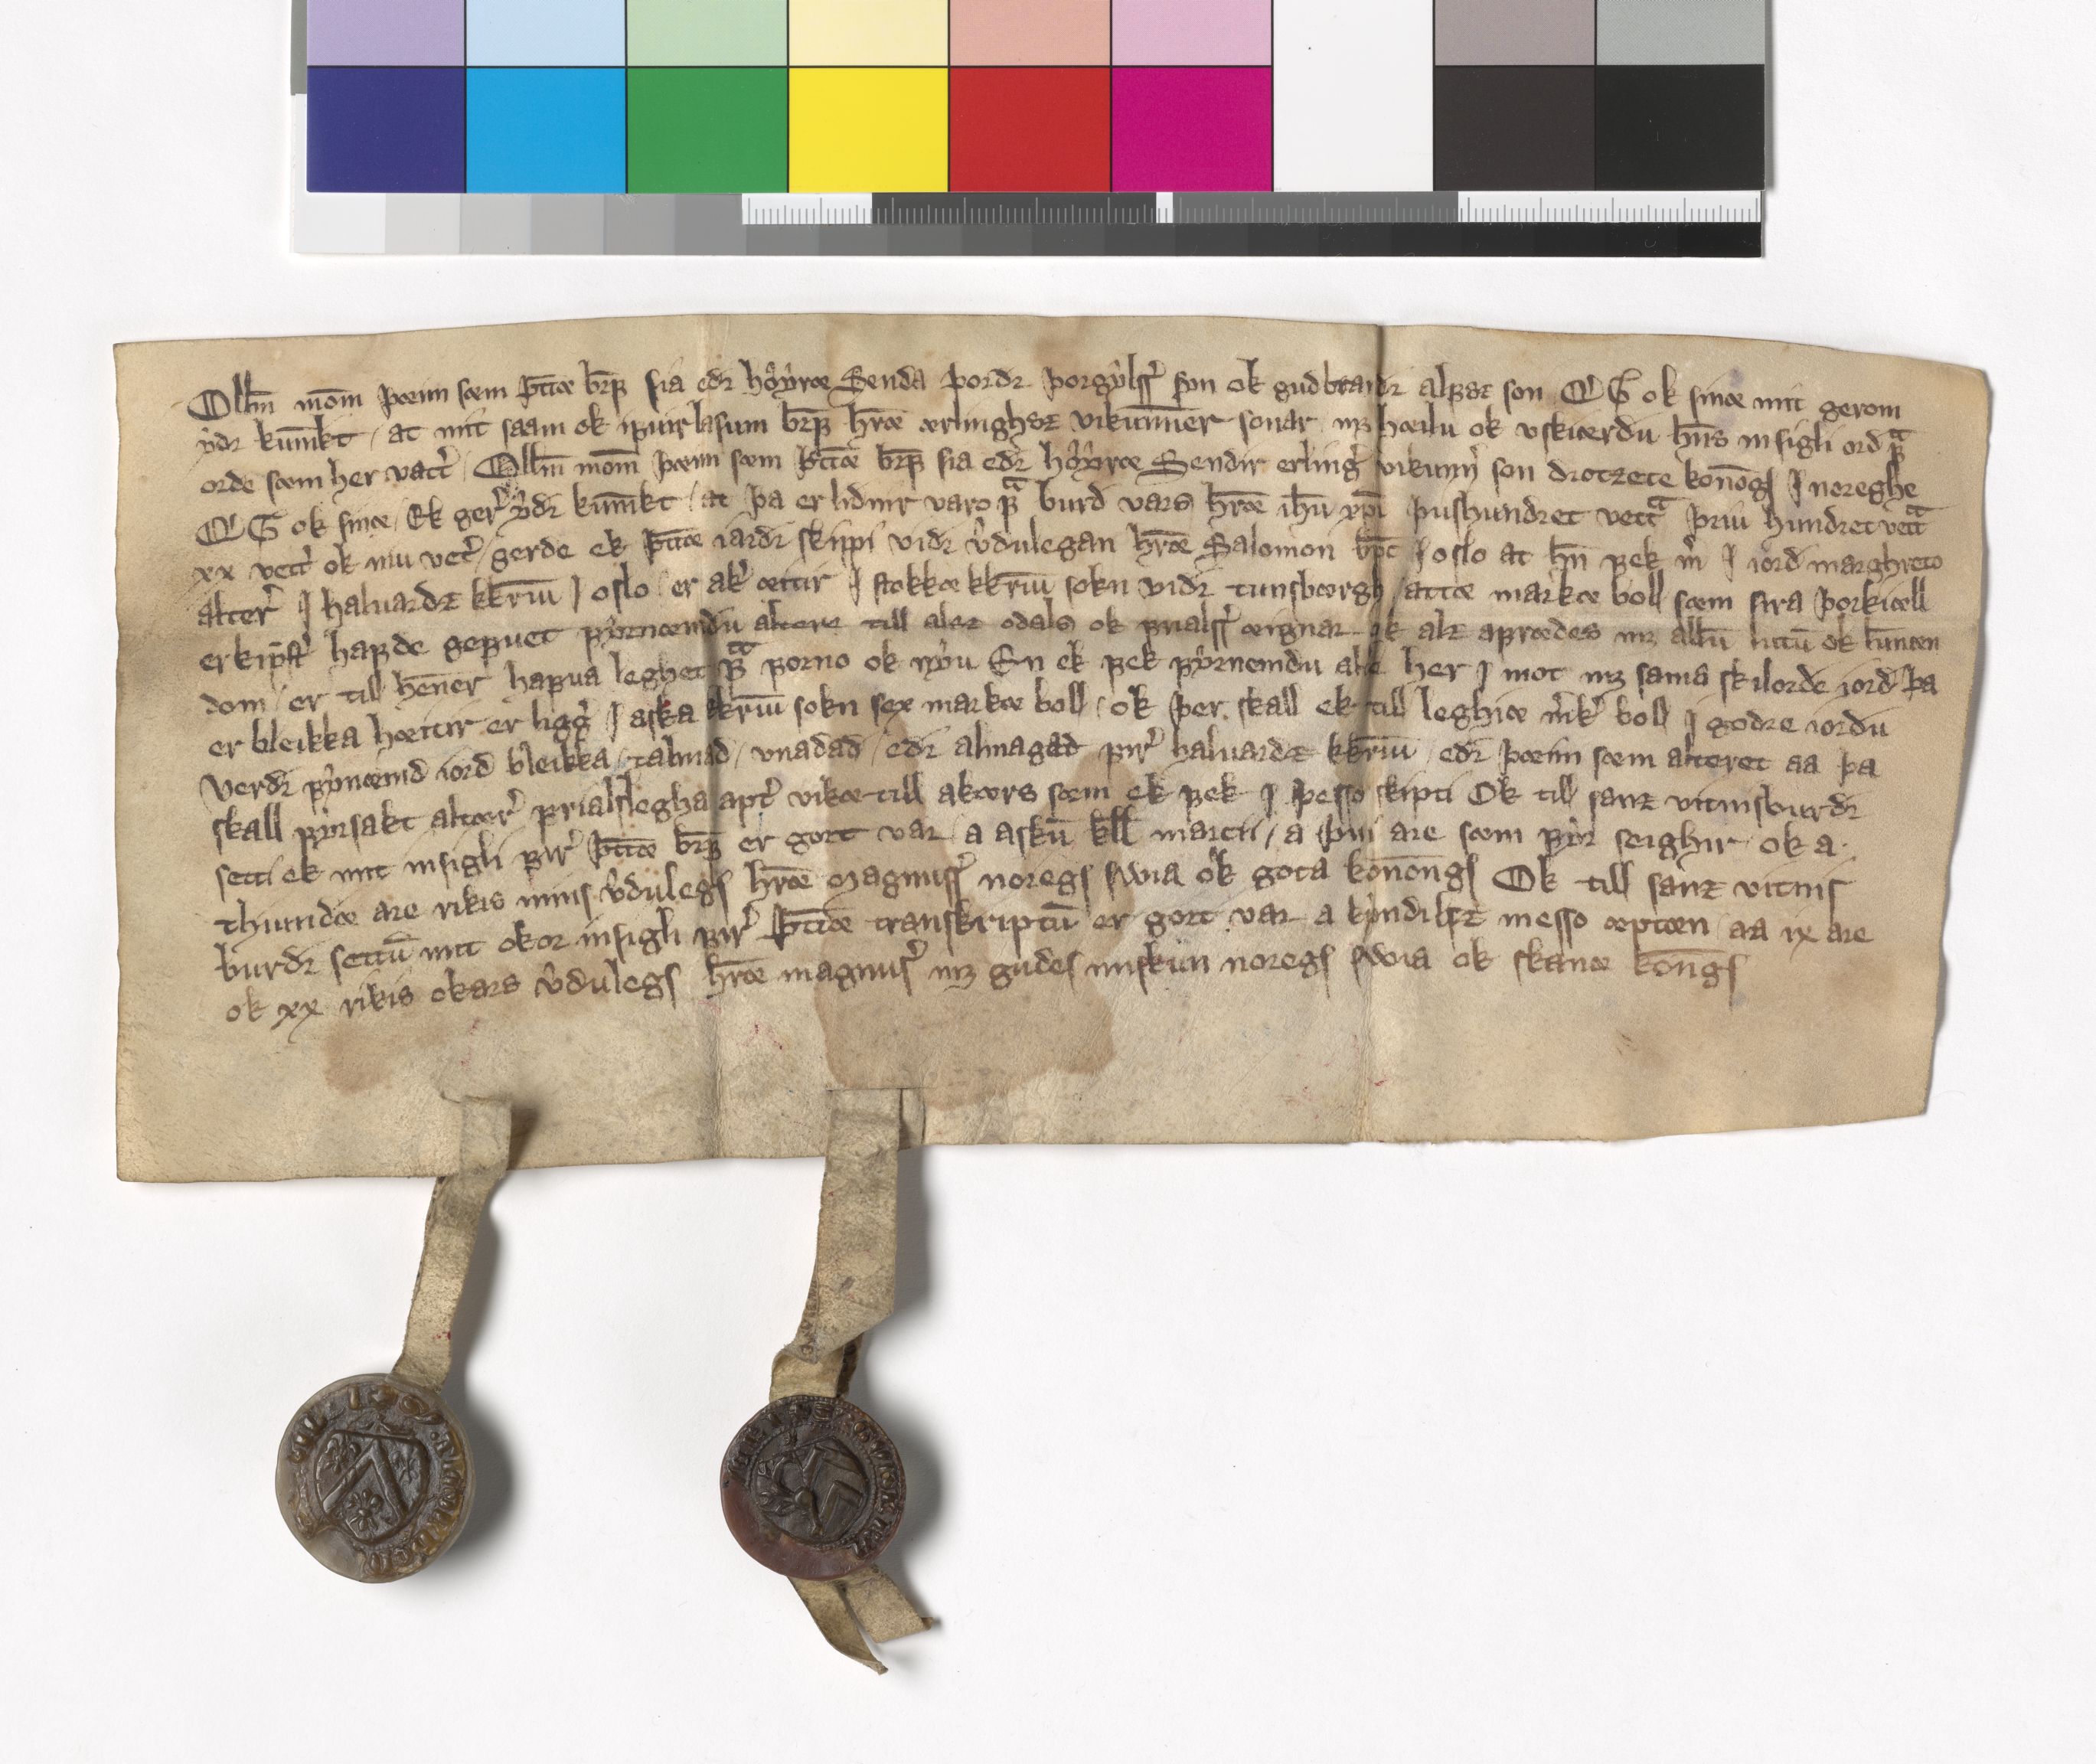 Ollm̄ mo̅m þœim sœm þ̅ttœ br̅ꝼ sia edr hǿyrœ Senda þordr þorgylsſ son ok gudbrandr alfꝛ son QG ok sinœ mit gerom
ydr kun̅ikt / at mit saam ok ifuirlasum br̅ꝼ hr̅œ œrlinghꝛ vikun̅ner sonar mꝫ hœilu ok vskiœrdu hn̅s insigli ord fᷓ
orde sœm her vatt͛ / Ollm̄ mo̅m þœim sœm þ̅ttœ br̅ꝼ sia edr hǿyrœ Sendir erling͛ vikun͛ son drotzete kono̅gſ J noreghe
QG ok sinœ / Ek ger͛ ydr kun̅ikt / at þa er lidnir varo fᷓ burd vars hr̅œ ih̅u xp̅i þushundret vettᷓ þriu hundret vettᷓ
xx vett͛ ok niu vet͛ / gerde ek þ̅ttœ iardr skipti vidr v͛dulegan hr̅œ Salomon bp̅ J oslo at hn̅ fek m͛ J iord marghreto
alter͛ J haluardꝛ kkr̅iu J oslo / er ak͛ œitir J stokkœ kkr̅iu sokn vidr tunsbœrgh / attœ markœ boll sœm sira þorkiœll
erkip̅ſt͛ hafde gefuet fyrnœmdu altere till alꝛ odals ok frialsſ œignar ok alꝛ afrœdes mꝫ allu̅ lutu̅ ok lun̅œn
dom / er till hen̅er hafua leghet fᷓ forno ok nyiu En ek fek fyrnemdu altere her J mot mꝫ sama skilorde iord þa
er bleikka hœitir er ligg͛ J aska kkr̅iu sokn sex markœ boll / ok þer skall ek till leghiœ m͛k͛ boll J godre iordu
Verdr fyrnœmd iord bleikka / talmad / vnadad / edr almagad fir͛ haluardꝛ kkr̅iu / edr þœim sœm alteret aa þa
skall fyrsakt altœr͛ frialslegha aft͛ vikœ till akœrs sœm ek fek J þesso skipti Ok till sanꝛ vitnisburdr
setti ek mit insigli fir͛ þ̅ttœ br̅ꝼ er gort var / a asku̅ kll̅ marcii / a þui are sœm fyr seighir / ok a
thiundœ are rikis mins v͛dulegſ hr̅œ Magnusſ noregſ swia ok gota kono̅ngſ Ok till sanꝛ vitnis
burdr settu̅ mit okor insigli fir͛ þ̅ttœ transkriptu̅ er gort var a kyndilꝛ messo œptœn / aa ix are
ok xx rikis okars v͛dulegſ hr̅œ magnus͛ mꝫ gudeſ miskun noregſ swia ok skanœ ko̅ngſ